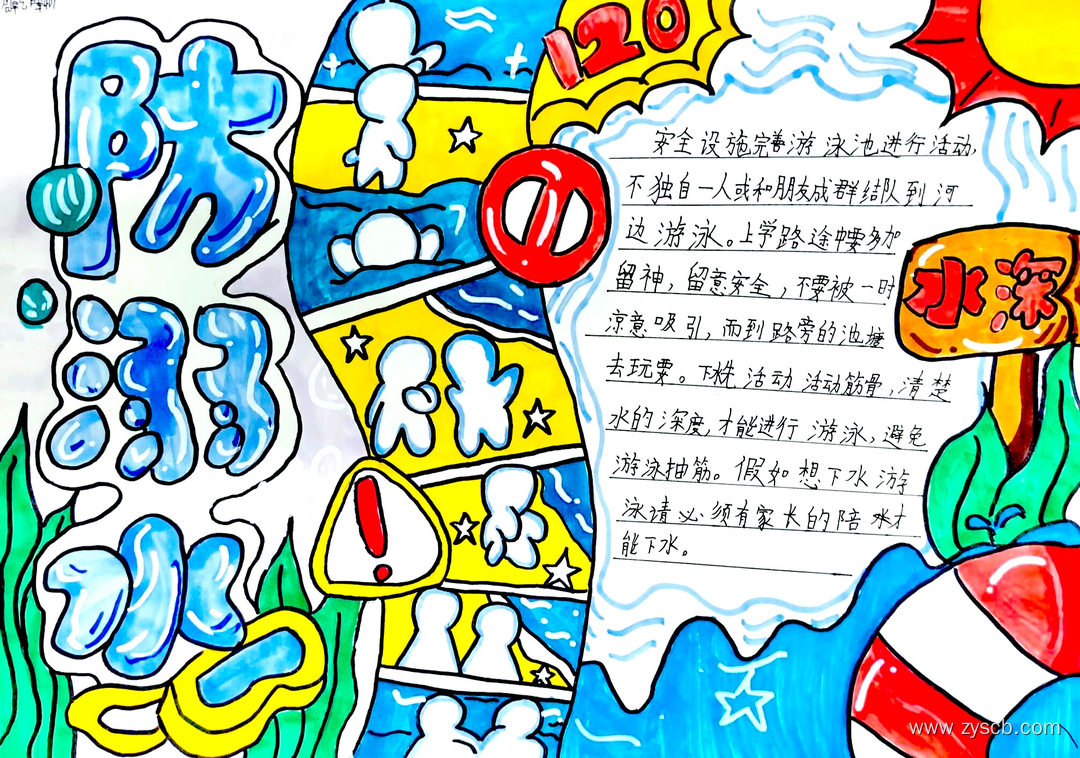 防溺水
120
水深
安全设施完善游泳池进行活动,
不独自一人或和朋友成群结队到河
边游泳。上学路途中要多加
留神,留意安全,不要被一时
凉意吸引,而到路旁的池塘
去玩耍。下水先活动活动筋骨,清楚
水的深度,才能进行游泳,避免
游泳抽筋。假如想下水游
泳请必须有家长的陪 才
能下水。
www.zyscb.com